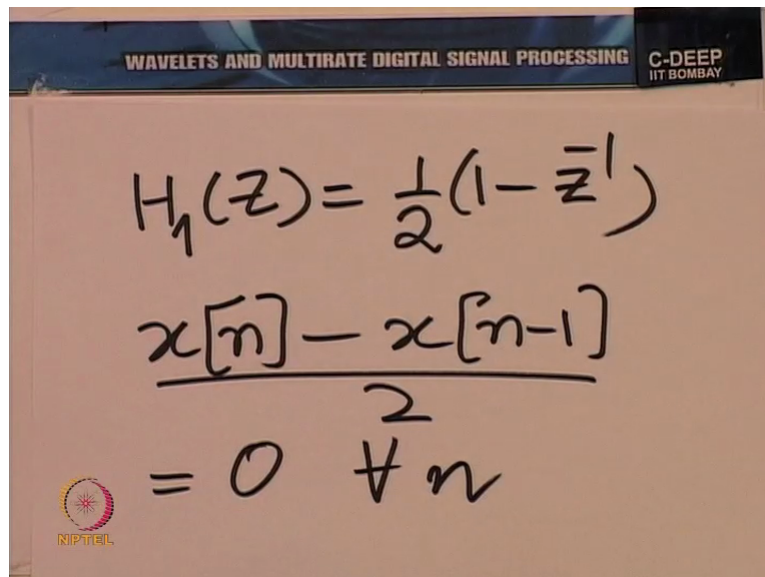 WAVELETS AND MULTIRATE DIGITAL SIGNAL PROCESSING
C-DEEP
IIT BOMBAY
H₁(Z) = 1/2 (1 - z⁻¹)
x[n] - x[n-1]
2
= 0 ∀ n
NPTEL